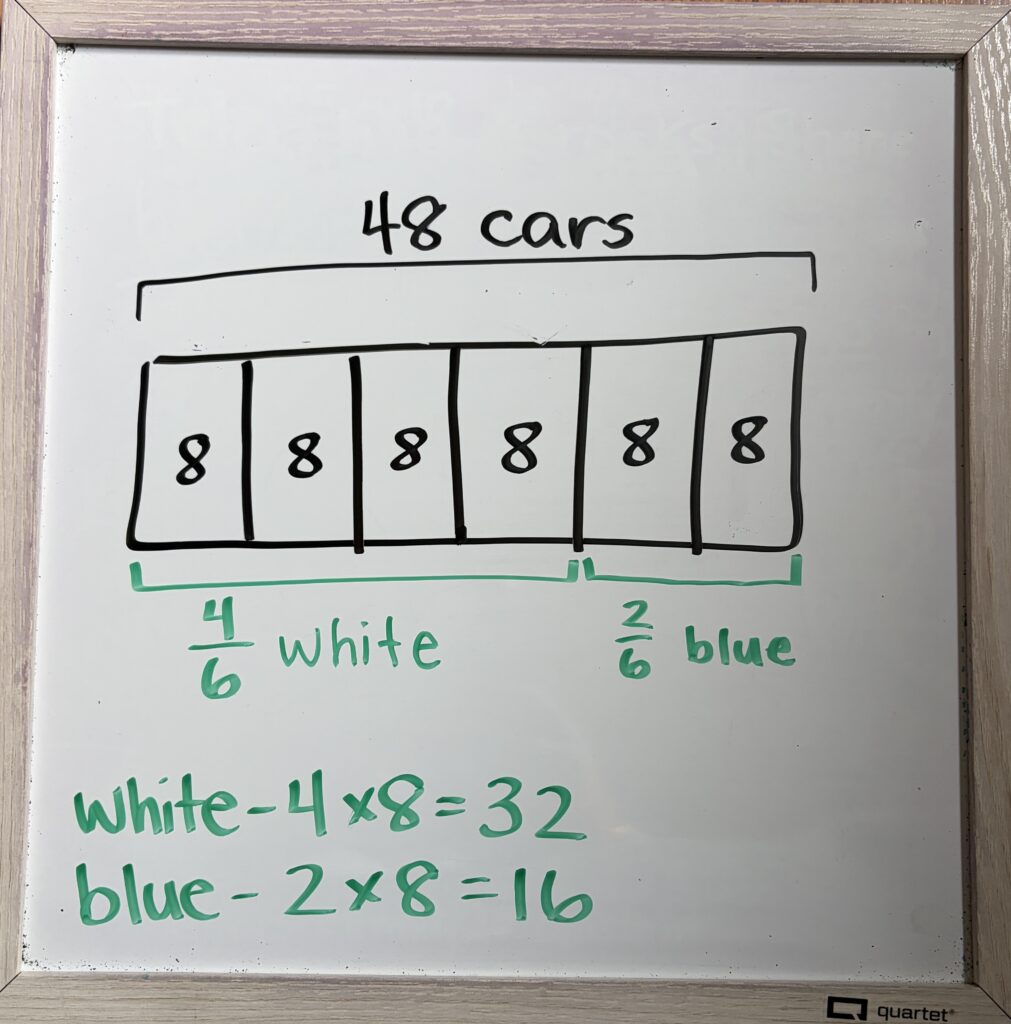 48 cars
8 8 8 8 8 8
4/6 white 2/6 blue
white - 4 x 8 = 32
blue - 2 x 8 = 16
quartet®